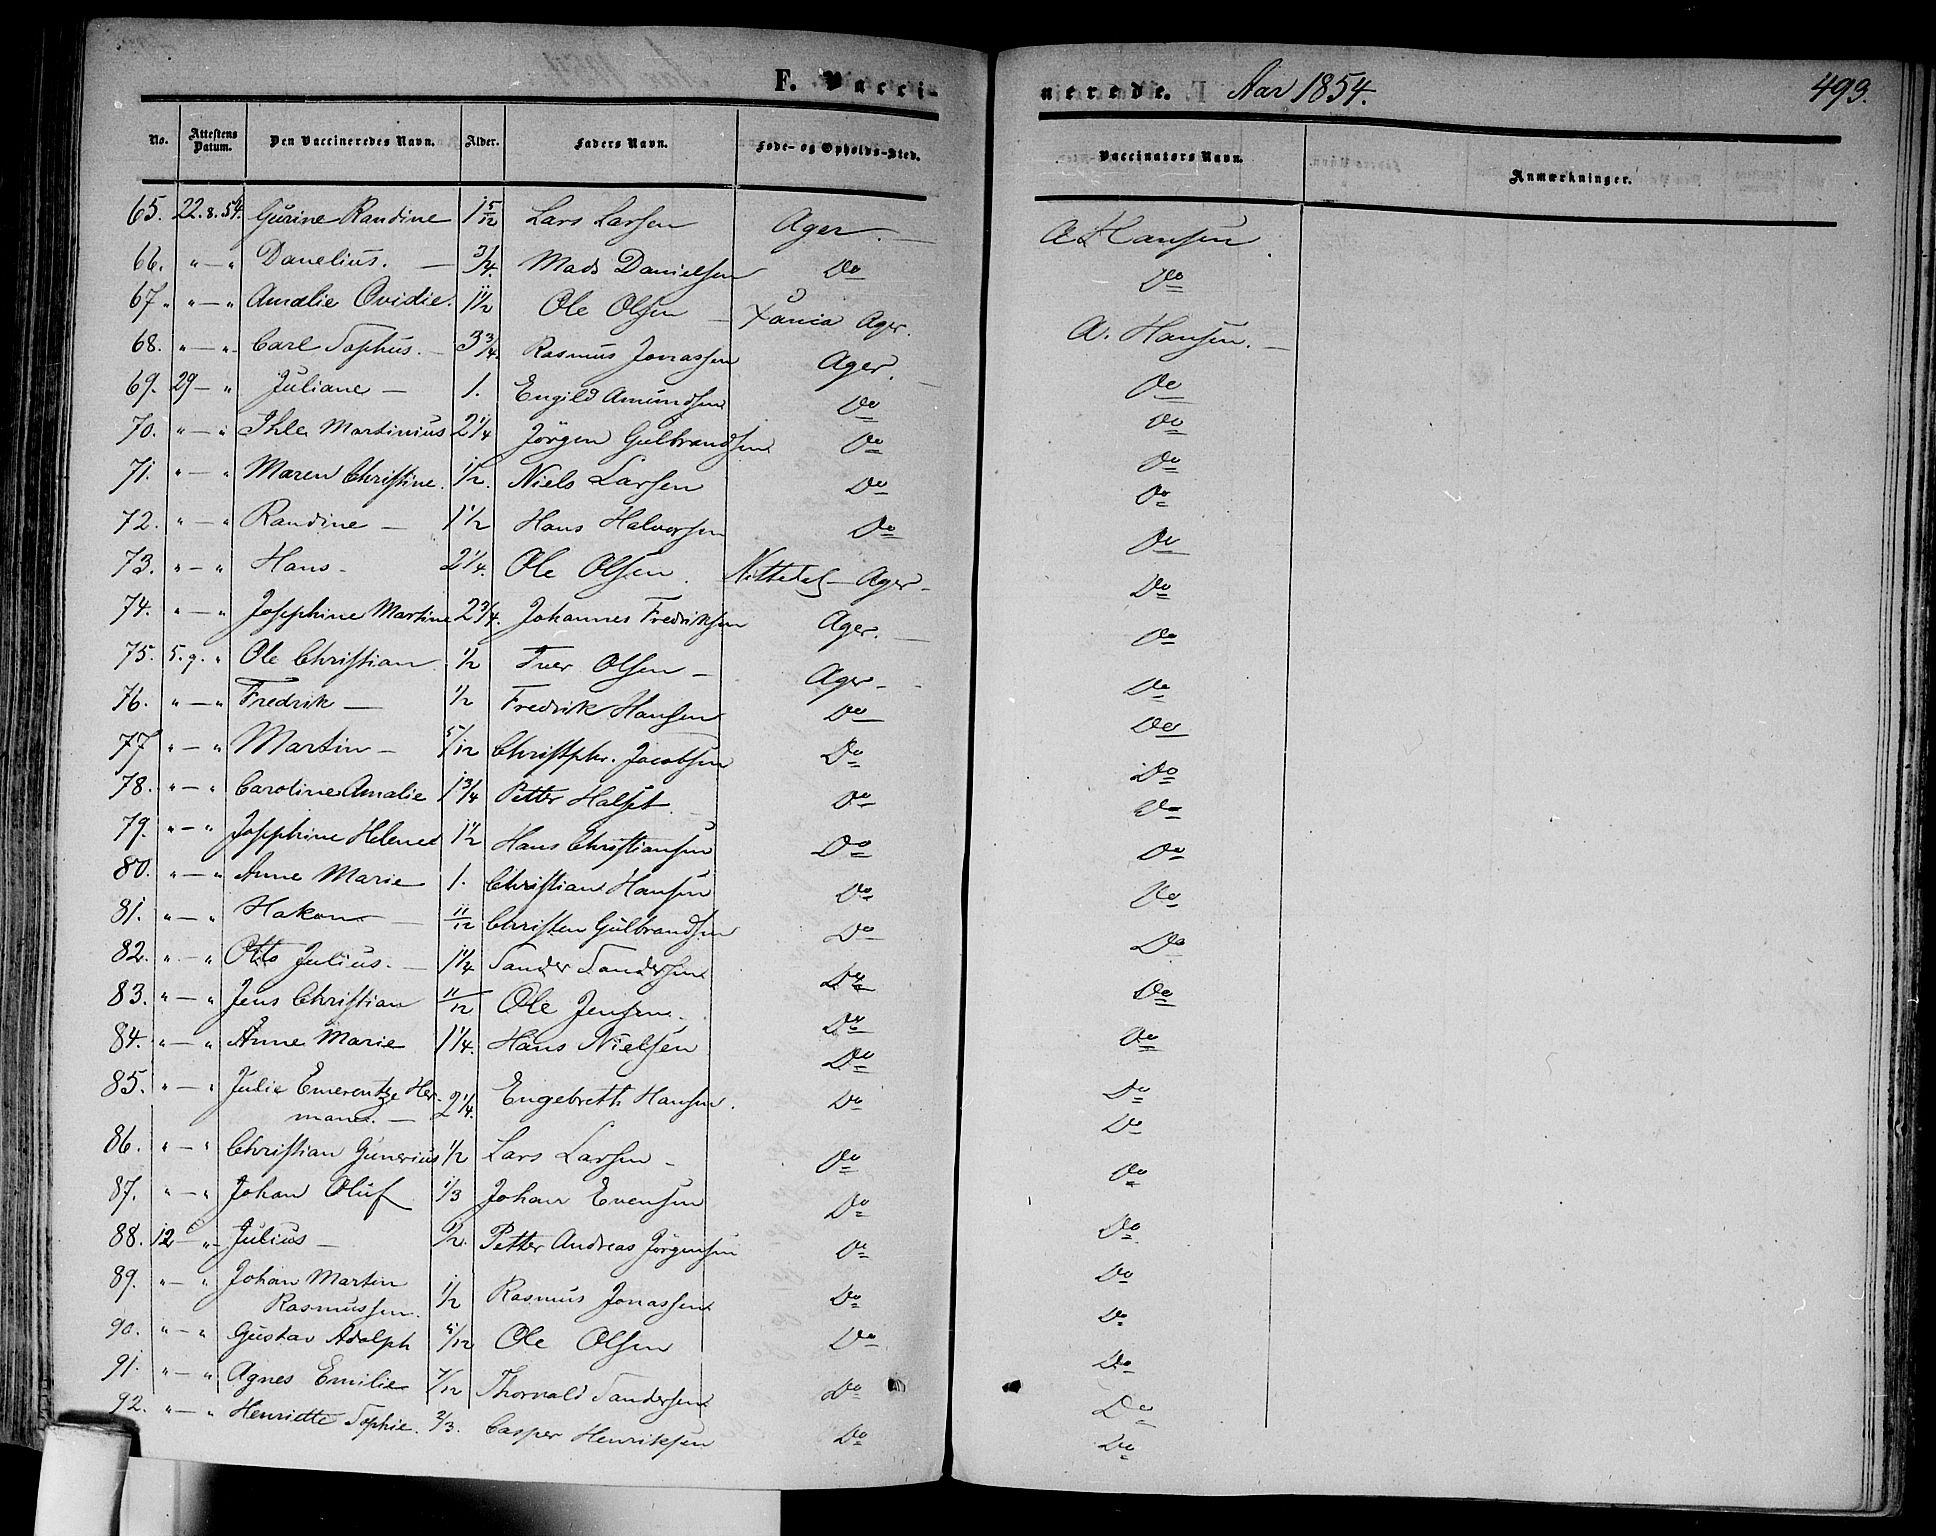 F. Vacci- nerede. Aar 1854. 493.
No. Attestens Datum. Den Vaccineredes Navn. Alder. Faders Navn. Føde- og Opholds-Sted. Vaccinators Navn. Anmærkninger.
65. 22.8.54. Gurine Randine 1 5/12 Lars Larsen Ager. — A Hansen
66. " — " Danelius. — 3/4. Mads Danielsen Do Do
67 " " — " Amalie Ovidie. 1 1/2 Ole Olsen — Xania Ager. A. Hansen. —
68. " — " Carl Sophus. — 3 3/4 Rasmus Jonassen Ager. — Do
69. 29 — " Juliane — 1. Engild Amundsen Do Do
70. " — " Ihle Martinius 2 1/4 Jörgen Gulbrandsen Do Do
71. " — " Maren Christine. 1/2. Niels Larsen Do Do
72. " — " Randine — 1 1/2 Hans Halvorsen Do Do
73. " — " Hans — 2 1/4. Ole Olsen. Nittedal — Ager — Do
74. " — " Josephine Martine 2 3/4. Johannes Fredriksen Ager. — Do
75. 5. 9. " Ole Christian 1/2 Iver Olsen — Ager — Do
76. " — " Fredrik — 1/2 Fredrik Hansen Do Do
77 " — " Martin — 5/12 Christphr. Jacobsen Do Do
78. " — " Caroline Amalie 1 3/4 Petter Halset. Do Do
79. " — " Josephine Helene 1 1/2 Hans Christiansen Do Do
80. " — " Anne Marie 1. Christian Hansen Do Do
81. " — " Hakon — 11/12 Christen Gulbrandsen Do Do
82. " — " Otto Julius. — 1 1/4 Sander Sandersen Do Do
83. " — " Jens Christian 11/12 Ole Jensen. Do Do
84. " — " Anne Marie 1 1/4. Hans Nielsen Do Do
85. " — " Julie Emerentze Her-
mane. — 2 1/4. Engebreth Hansen. Do Do
86. " — " Christian Gunerius 1/2 Lars Larsen — Do Do
87. " — " Johan Oluf 1/3 Johan Evensen Do Do
88. 12 — " Julius — 1/2. Petter Andreas Jörgensen Do Do
89. " — " Johan Martin
Rasmussen. 1/2 Rasmus Jonassen Do Do
90. " — " Gustav Adolph 5/12 Ole Olsen Do Do
91. " — " Agnes Emilie 7/12 Thorvald Sandersen Do Do
92. " — " Henriette Sophie. 2/3. Casper Henriksen Do Do